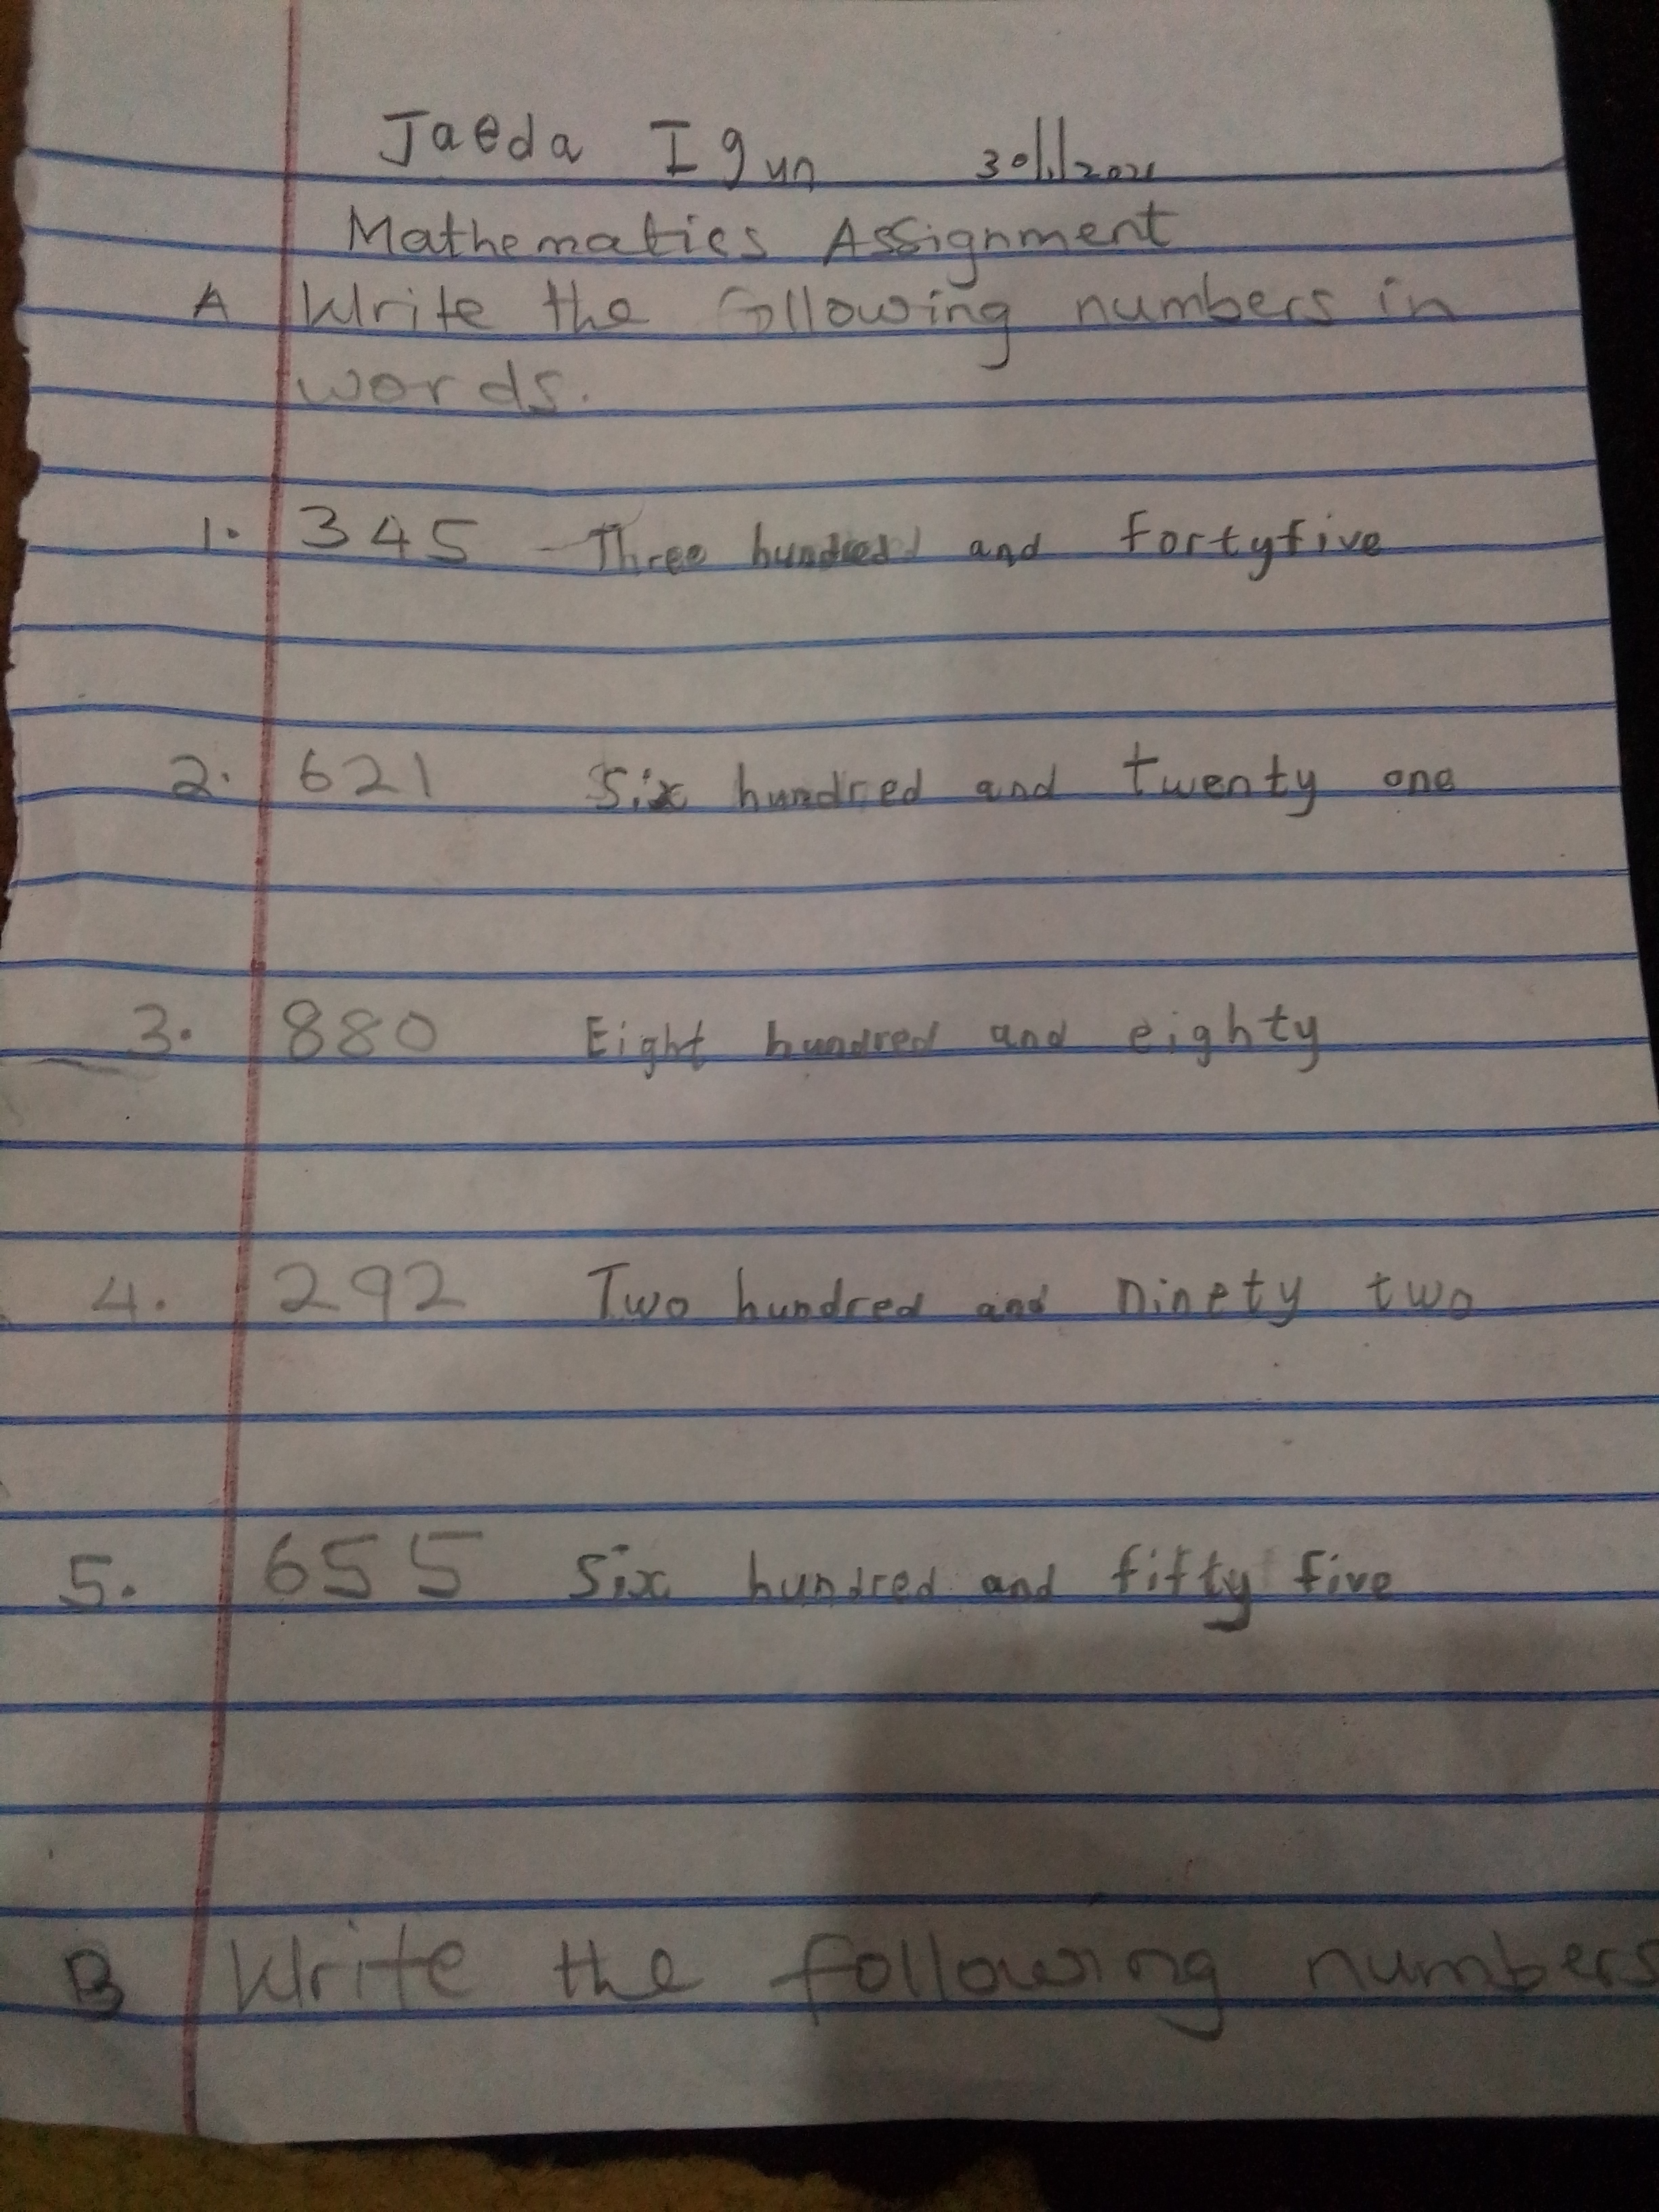 Jaeda Igun 30/1/2021
Mathematics Assignment
A Write the following numbers in
words.
1. 345 - Three hundred and fortyfive
2. 621 Six hundred and twenty one
3. 880 Eight hundred and eighty
4. 292 Two hundred and ninety two
5. 655 Six hundred and fifty five
B Write the following numbers